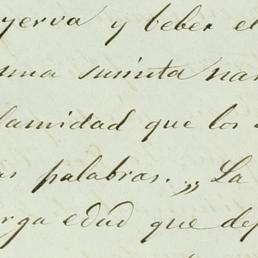 yerva y beber el
una suninta nar
lamidad que los
as palabras.„ La
arga edad que dej